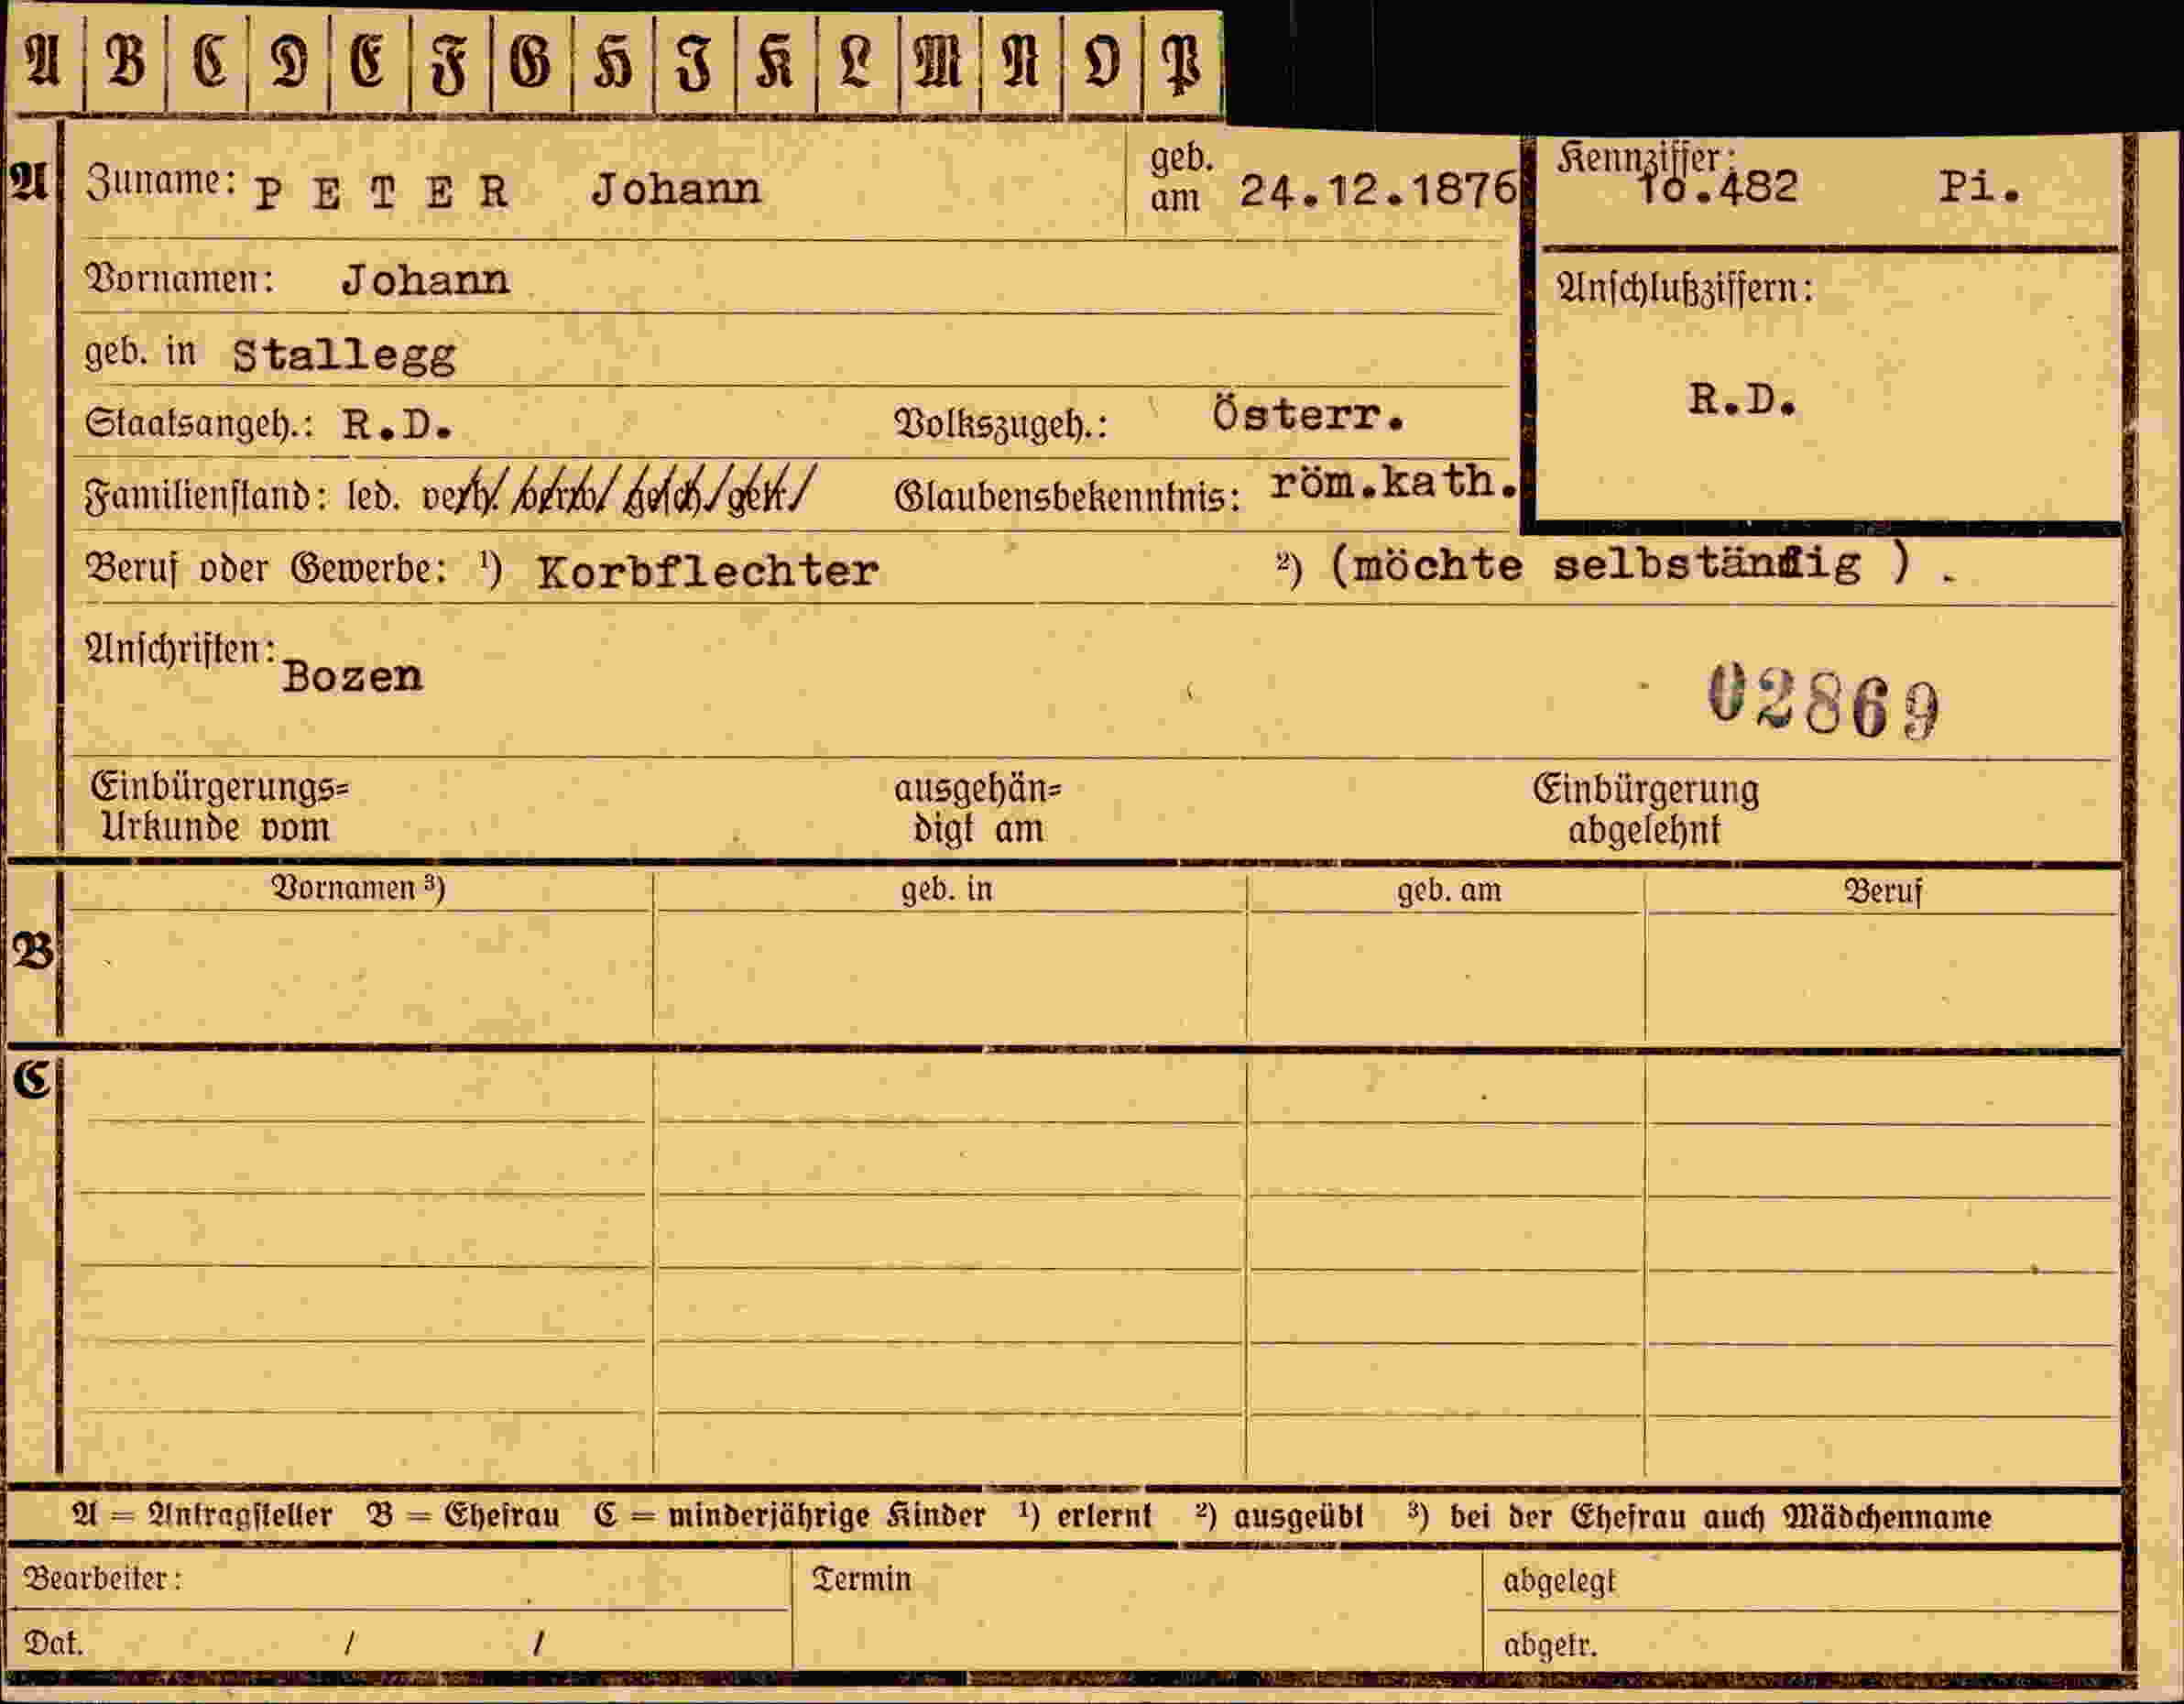 A B C D E F G H I K L M N O P
A Zuname: P E T E R Johann geb. am 24.12.1876 Kennziffer: 10.482 Pi.
Vornamen: Johann Anschlußziffern:
geb. in Stallegg
R.D.
Staatsangeh.: R.D. Volkszugeh.: Österr.
Familienstand: led. verh. verw. gesch. getr. Glaubensbekenntnis: röm.kath.
Beruf oder Gewerbe: ¹) Korbflechter ²) (möchte selbständig ) .
Anschriften: Bozen
02869
Einbürgerungs= ausgehän= Einbürgerung
Urkunde vom digt am abgelehnt
Vornamen ³) geb. in geb. am Beruf
B
C
A = Antragsteller B = Ehefrau C = minderjährige Kinder ¹) erlernt ²) ausgeübt ³) bei der Ehefrau auch Mädchenname
Bearbeiter: Termin abgelegt
Dat. / / abgetr.